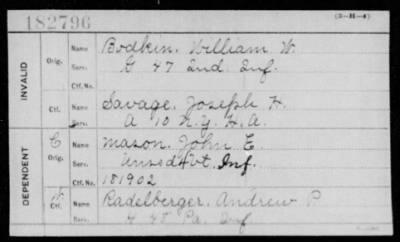 182796
(3-H-4)
INVALID
Orig.
Name Bodkin, William W.
Serv. G 47 Ind. Inf.
Ctf. No.
Ctf.
Name Savage, Joseph H.
Serv. A 10 N.Y. H.A.
DEPENDENT
C
Orig.
Name Mason, John E.
Serv. Unsed Vt. Inf.
Ctf. No. 181902
Ctf.
Name Radelberger, Andrew P.
Serv. 48 Pa. Inf